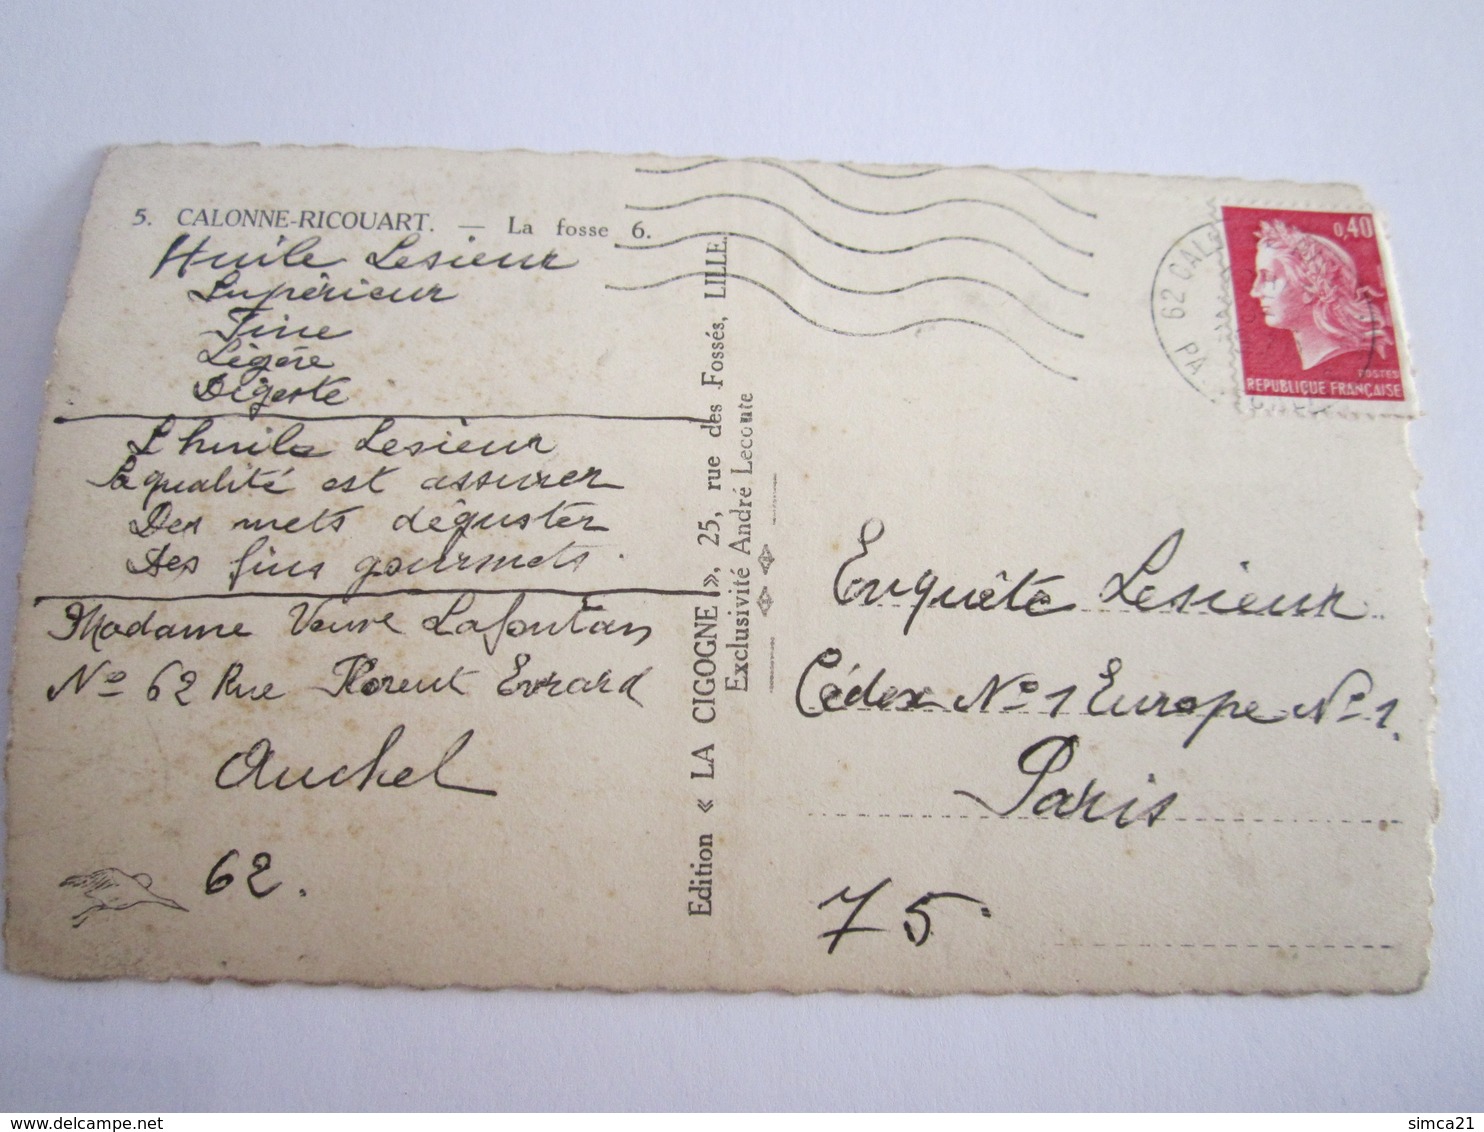 5. CALONNE-RICOUART. — La fosse 6.
Huile Lesieur
Supérieur
Fine
Légère
Digeste
L'huile Lesieur
Sa qualité est assurer
Des mets déguster
Des fins gourmets.
Madame Veuve Lafontan
No 62 Rue Florent Evrard
Auchel
62.
Edition « LA CIGOGNE », 25, rue des Fossés, LILLE.
Exclusivité André Lecoute
0,40
POSTES
REPUBLIQUE FRANÇAISE
62 CAL
PA
Enquête Lesieur
Cédex No 1 Europe No 1.
Paris
75.
delcampe.net
simca21